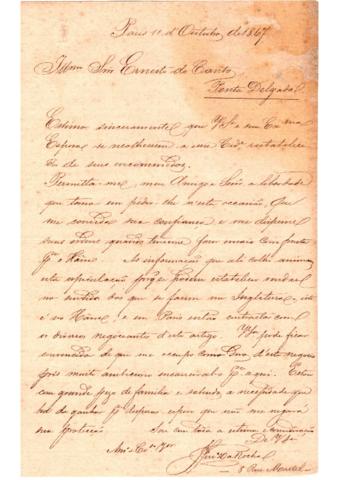 Paris 11 d'Outubro de 1867
Illmo Snr Ernesto do Canto
Ponta Delgada
Estimo sinceramente que VSa e sua Exma
Esposa se recolhessem a seu restabeleci
do de seus incommodos.
Permitta-me, meu Amigo e Snr a liberdade
que tomo em pedir-lhe n'esta occasião, que
me conceda sua confiança e me dispense
suas ordens quando tiverem fructa
pa o Havre. As informações que ali colhi anima
esta especulação porque podem estabelecer vendas
no sentido dos que se fazem na Inglaterra, isto
é no Havre, e em Paris entrar contratos com
os diversos negociantes d'este artigo. VSa pode ficar
na certeza de que me occupo como seu d'este negocio
pois muito ambiciono encaminhal-o pa aqui. Estou
com grande pezo de familia e sabendo a necessidade que
hei de ganhar pa despeza espero que não me negará
sua protecção. Sou com toda a estima e consideração
De VSa
Amo Vor
Luiz da Rocha
8 Rue